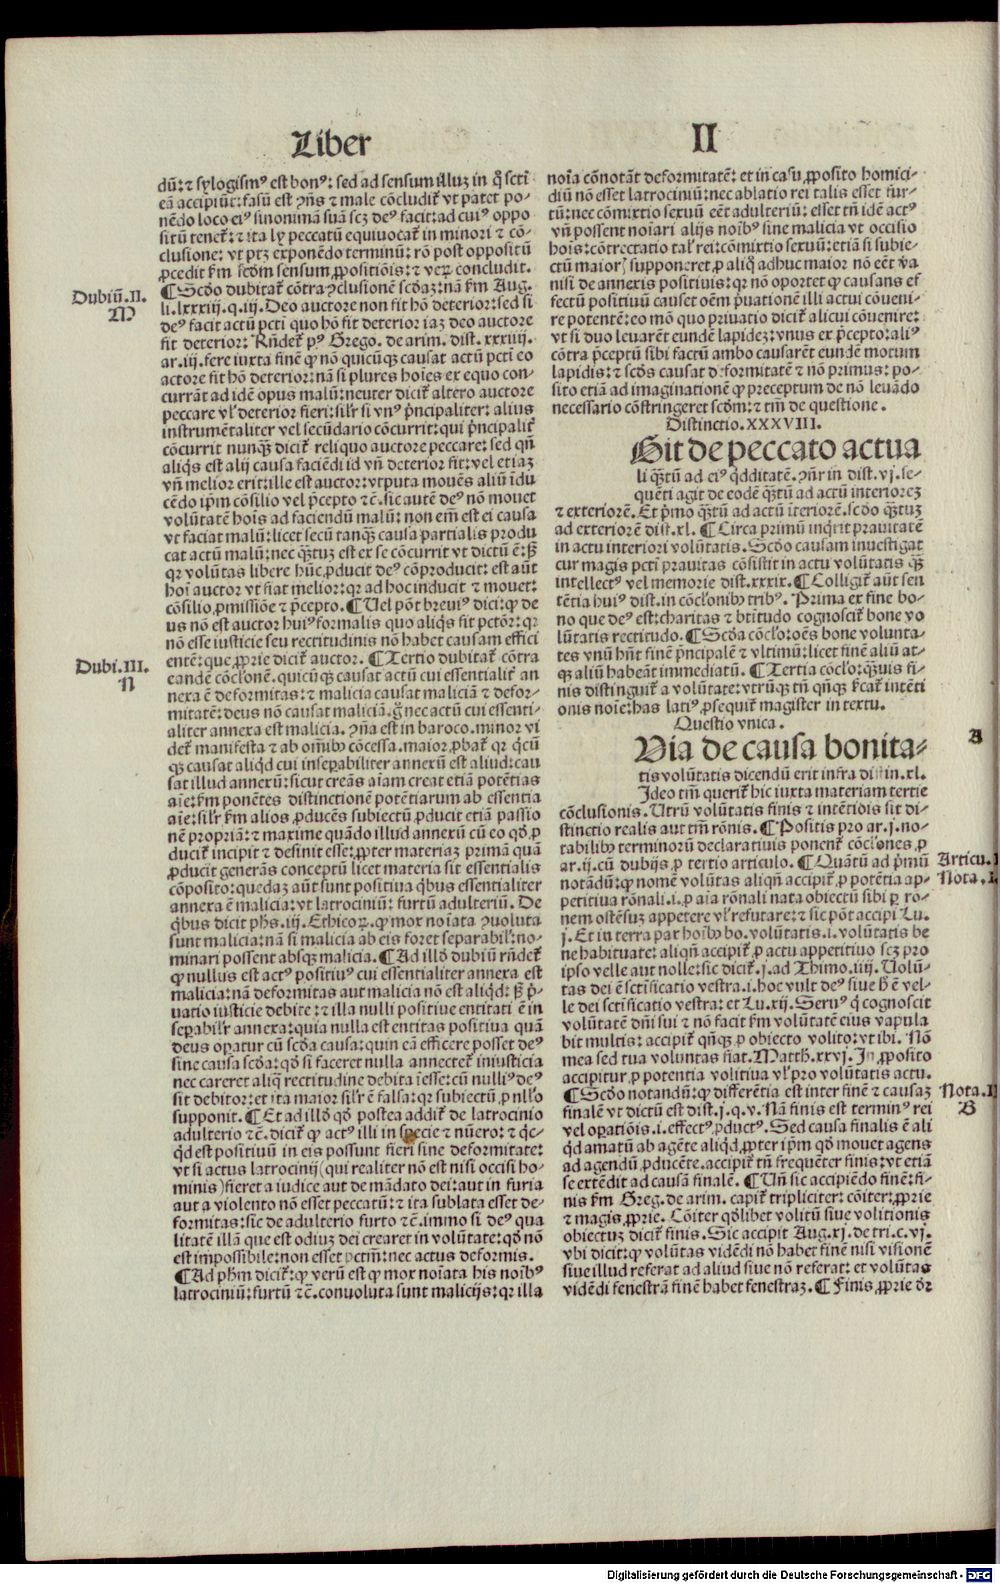 Liber
II
dū: ⁊ sylogismꝰ est bonꝰ: sed ad sensum illuz in q̊ scti
eā accipiūt: falsū est ꝯñs ⁊ male cōcludit̃ vt patet po-
nēdo loco eiꝰ sinonimā suā scz deꝰ facit: ad cuiꝰ oppo
sitū tenet̃: ⁊ ita ly peccatū equiuocat̃ in minori ⁊ cō-
clusione: vt ptz exponēdo terminū: rō post oppositū
ꝓcedit ẜm scḋm sensum ꝓpositiōis: ⁊ veꝝ concludit.
¶ Scḋo dubitat̃ cōtra ꝯclusionē scḋaz: nā ẜm Aug.
li. lxxxiij. q. iij. Deo auctore non fit hō deterior: sed si
deꝰ facit actū pcti quo hō fit deterior iaz deo auctore
fit deterior: Rñdet̃ pꝰ Grego. de arim. dist. xxxiiij.
ar. iij. fere iuxta finē ꝙ nō quicūqꝫ causat actū pcti eo
actore fit hō deterior: nā si plures hoīes ex equo con-
currāt ad idē opus malū: neuter dicit̃ altero auctore
peccare vl̓ deterior fieri: sil̓r si vnꝰ p̄ncipaliter: alius
instrumētaliter vel secūdario cōcurrit: qui p̄ncipalit̃
cōcurrit nunqꝫ̄ dicit̃ reliquo auctore peccare: sed qñ
aliq̇s est alij causa faciēdi id vñ deterior fit: vel etiaz
vñ melior erit: ille est auctor: vtputa mouēs aliū īdu
cēdo ip̄m cōsilio vel p̄cepto ⁊c̄. sic autē deꝰ nō mouet
volūtatē hoīs ad faciendū malū: non em̄ est ei causa
vt faciat malū: licet secū tanqꝫ̄ causa partialis produ
cat actū malū: nec q̄ꝫtuz est ex se cōcurrit vt dictū ē: ꝫ̄
qꝛ volūtas libere hūc ꝓducit deꝰ cōproducit: est aūt
hoī auctor vt fiat melior: qꝛ ad hoc inducit ⁊ mouet:
cōsilio, ꝓmissiōe ⁊ p̄cepto. ¶ Uel pōt breuiꝰ dici: ꝙ de
us nō est auctor huiꝰ formalis quo aliq̇s sit pctōr: qꝛ
nō esse iusticie seu rectitudinis nō habet causam effici
entē: que ꝓprie dicit̃ auctor. ¶ Tertio dubitat̃ cōtra
eandē cōcl̓onē. quicūqꝫ causat actū cui essentialit̃ an
nexa ē deformitas: ⁊ malicia causat maliciā ⁊ defor-
mitatē: deus nō causat maliciā. g̊ nec actū cui essenti-
aliter annexa est malicia. ꝯña est in baroco. minor vi
det̃ manifesta ⁊ ab om̄ibꝰ cōcessa. maior ꝓbat̃ qꝛ q̇cū
qꝫ causat aliq̇d cui inseꝑabiliter annexū est aliud: cau
sat illud annexū: sicut creās aīam creat etiā potētias
aīe: ẜm ponētes distinctionē potētiarum ab essentia
aīe: sil̓r ẜm alios ꝓducēs subiectū ꝓducit etiā passio
nē propriā: ⁊ maxime quādo illud annexū cū eo qḋ ꝓ
ducit̃ incipit ⁊ desinit esse: ꝓpter materiaz primā quā
ꝓducit generās conceptū licet materia sit essentialis
cōposito: quedaz aūt sunt positiua q̇bus essentialiter
annexa ē malicia: vt latrociniū: furtū adulteriū. De
q̇bus dicit phs. iij. Ethicoꝝ. ꝙ mox noīata ꝯuoluta
sunt malicia: nā si malicia ab eis foret separabil̓: no-
minari possent absqꝫ malicia. ¶ Ad illḋ dubiū rñdet̃
ꝙ nullus est actꝰ positiuꝰ cui essentialiter annexa est
malicia: nā deformitas aut malicia nō est aliq̇d: ꝫ̄ p̄-
uatio iusticie debite: ⁊ illa nulli positiue entitati ē in
seꝑabil̓r annexa: quia nulla est entitas positiua quā
deus opatur cū scḋa causa: quin eā efficere posset deꝰ
sine causa scḋa: qḋ si faceret nulla annectet̃ iniusticia
nec careret aliq̇ rectitudine debita īesse: cū nulliꝰ deꝰ
sit debitor: et ita maior sil̓r ē falsa: qꝛ subiectū ꝓ nll̓o
supponit. ¶ Et ad illḋ qḋ postea addit̃ de latrocinio
adulterio ⁊c̄. dicit̃ ꝙ actꝰ illi in specie ⁊ nūero: ⁊ q̇c-
q̇d est positiuū in eis possunt fieri sine deformitate:
vt si actus latrocinij (qui realiter nō est nisi occisi ho-
minis) fieret a iudice aut de mādato dei: aut in furia
aut a violento nō esset peccatū: ⁊ ita sublata esset de-
formitas: sic de adulterio furto ⁊c̄. immo si deꝰ qua
litatē illā que est odiuz dei crearet in volūtate: qḋ nō
est impossibile: non esset pctm̄: nec actus deformis.
¶ Ad phm̄ dicit̃: ꝙ verū est ꝙ mox noīata his noībꝰ
latrociniū: furtū ⁊c̄. conuoluta sunt malicijs: qꝛ illa
Dubiū. II.
M
Dubi. III.
N
noīa cōnotāt deformitatē: et in casu ꝓposito homici-
diū nō esset latrociniū: nec ablatio rei talis esset fur-
tū: nec cōmixtio sexuū eēt adulteriū: esset tñ idē actꝰ
vñ possent noīari alijs noībꝰ sine malicia vt occisio
hoīs: cōtrectatio tal̓ rei: cōmixtio sexuū: etiā si subie-
ctū maior̃ supponeret ꝓ aliq̊ adhuc maior nō eēt va
nisi de annexis positiuis: qꝛ nō oportet ꝙ causans ef
fectū positiuū causet oēm p̄uationē illi actui cōueni-
re potentē: eo mō quo priuatio dicit̃ alicui cōuenire:
vt si duo leuarēt eundē lapidez: vnus ex p̄cepto: aliꝰ
cōtra p̄ceptū sibi factū ambo causarēt eundē motum
lapidis: ⁊ scḋs causat deformitatē ⁊ nō primus: po-
sito etiā ad imaginationē ꝙ preceptum de nō leuādo
necessario cōstringeret scḋm: ⁊ tm̄ de questione.
Distinctio. XXXVIII.
Sit de peccato actua
li q̄ꝫtū ad eiꝰ q̇dditatē. ꝯñr in dist. vj. se-
quēti agit de eodē q̄ꝫtū ad actū interiorez
⁊ exteriorē. Et p̄mo q̄ꝫtū ad actū īteriorē. scḋo q̄ꝫtuz
ad exteriorē dist. xl. ¶ Circa primū inq̇rit prauitatē
in actu interiori volūtatis. Scḋo causam inuestigat
cur magis pcti prauitas cōsistit in actu volūtatis q̄ꝫ
intellectꝰ vel memorie dist. xxxix. ¶ Colligit̃ aūt sen
tētia huiꝰ dist. in cōcl̓onibꝰ tribꝰ. Prima ex fine bo-
no que deꝰ est: charitas ⁊ btītudo cognoscit̃ bone vo
lūtatis rectitudo. ¶ Scḋa cōcl̓o: oēs bone volunta-
tes vnū hñt finē p̄ncipalē ⁊ vltimū: licet finē aliū at-
qꝫ aliū habeāt immediatū. ¶ Tertia cōcl̓o: q̄ꝫuis fi-
nis distinguit̃ a volūtate: vtrūqꝫ tñ qñqꝫ ẜcat̃ intēti
onis noīe: has latiꝰ ꝓsequit̃ magister in textu.
Questio vnica.
Uia de causa bonita-
tis volūtatis dicendū erit infra distin. xl.
Ideo tm̄ querit̃ hic iuxta materiam tertie
cōclusionis. Utrū volūtatis finis ⁊ intētiōis sit di-
stinctio realis aut tm̄ rōnis. ¶ Positis pro ar. j. no-
tabilibꝰ terminorū declaratiuis ponent̃ cōcl̓ones ꝓ
ar. ij. cū dubijs ꝓ tertio articulo. ¶ Quātū ad p̄mū
notādū: ꝙ nomē volūtas aliqñ accipit̃ ꝓ potētia ap-
petitiua rōnali. i. ꝓ aīa rōnali nata obiectū sibi ꝑ ro-
nem ostēsuz appetere vl̓ refutare: ⁊ sic pōt accipi Lu.
j. Et in terra pax hoībꝰ bo. volūtatis. i. volūtatis be
ne habituate: aliqñ accipit̃ ꝓ actu appetitiuo scz pro
ipso velle aut nolle: sic dicit̃. j. ad Thimo. iiij. Uolū-
tas dei ē sctīficatio vestra. i. hoc vult deꝰ siue hꝰ ē vel-
le dei sctīficatio vestra: et Lu. xij. Seruꝰ q̇ cognoscit
volūtatē dñi sui ⁊ nō facit ẜm volūtatē eius vapula
bit multis: accipit̃ qñqꝫ ꝓ obiecto volito: vt ibi. Nō
mea sed tua voluntas fiat. Matth. xxvj. In ꝓposito
accipitur ꝓ potentia volitiua vl̓ pro volūtatis actu.
¶ Scḋo notandū: ꝙ differētia est inter finē ⁊ causaz
finalē vt dictū est dist. j. q. v. Nā finis est terminꝰ rei
vel oꝑatiōis. i. effectꝰ ꝓductꝰ. Sed causa finalis ē ali
q̇d amatū ab agēte aliq̇d, ꝓpter ip̄m qḋ mouet agens
ad agendū ꝓducēte. accipit̃ tñ frequēter finis: vt etiā
se extēdit ad causā finalē. ¶ Uñ sic accipiēdo finē: fi-
nis ẜm Greg. de arim. capit̃ tripliciter: cōiter: ꝓprie
⁊ magis ꝓprie. Cōiter qḋlibet volitū siue volitionis
obiectuz dicit̃ finis. Sic accipit Aug. xj. de tri. c. vj.
vbi dicit: ꝙ voluntas vidēdi nō habet finē nisi visionē
siue illud referat ad aliud siue nō referat: et volūtas
vidēdi fenestrā finē habet fenestraz. ¶ Finis ꝓprie d̄r
A
Articu. I
Nota. I.
Nota. II
B
Digitalisierung gefördert durch die Deutsche Forschungsgemeinschaft - DFG